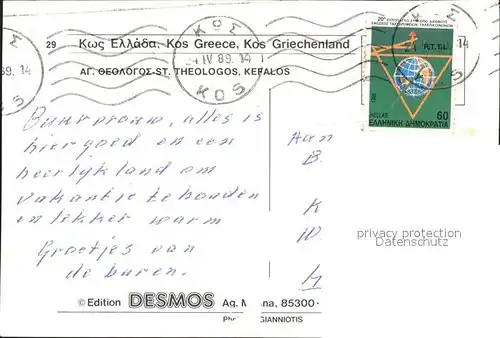 29 Κως Ελλάδα, Kos Greece, Kos Griechenland
ΑΓ. ΘΕΟΛΟΓΟΣ-ST. THEOLOGOS, KEFALOS
ΚΩΣ
IV 89. 14
KOS
89. 14
20º ΕΥΡΩΠΑΪΚΟ ΣΥΝΕΔΡΙΟ ΔΙΕΘΝΟΥΣ
ΕΝΩΣΕΩΣ ΤΑΧΥΔΡΟΜΙΚΩΝ ΤΗΛΕΠΙΚΟΙΝΩΝΙΩΝ
R.T.T.Ü.
HELLAS 60
ΕΛΛΗΝΙΚΗ ΔΗΜΟΚΡΑΤΙΑ
Buurvrouw, alles is
hier goed en een
heerlijk land om
vakantie te houden
en lekker warm
Groetjes van
de buren.
Aan
B.
K
W
privacy protection
Datenschutz
© Edition DESMOS Ag. M na, 85300
Pho GIANNIOTIS